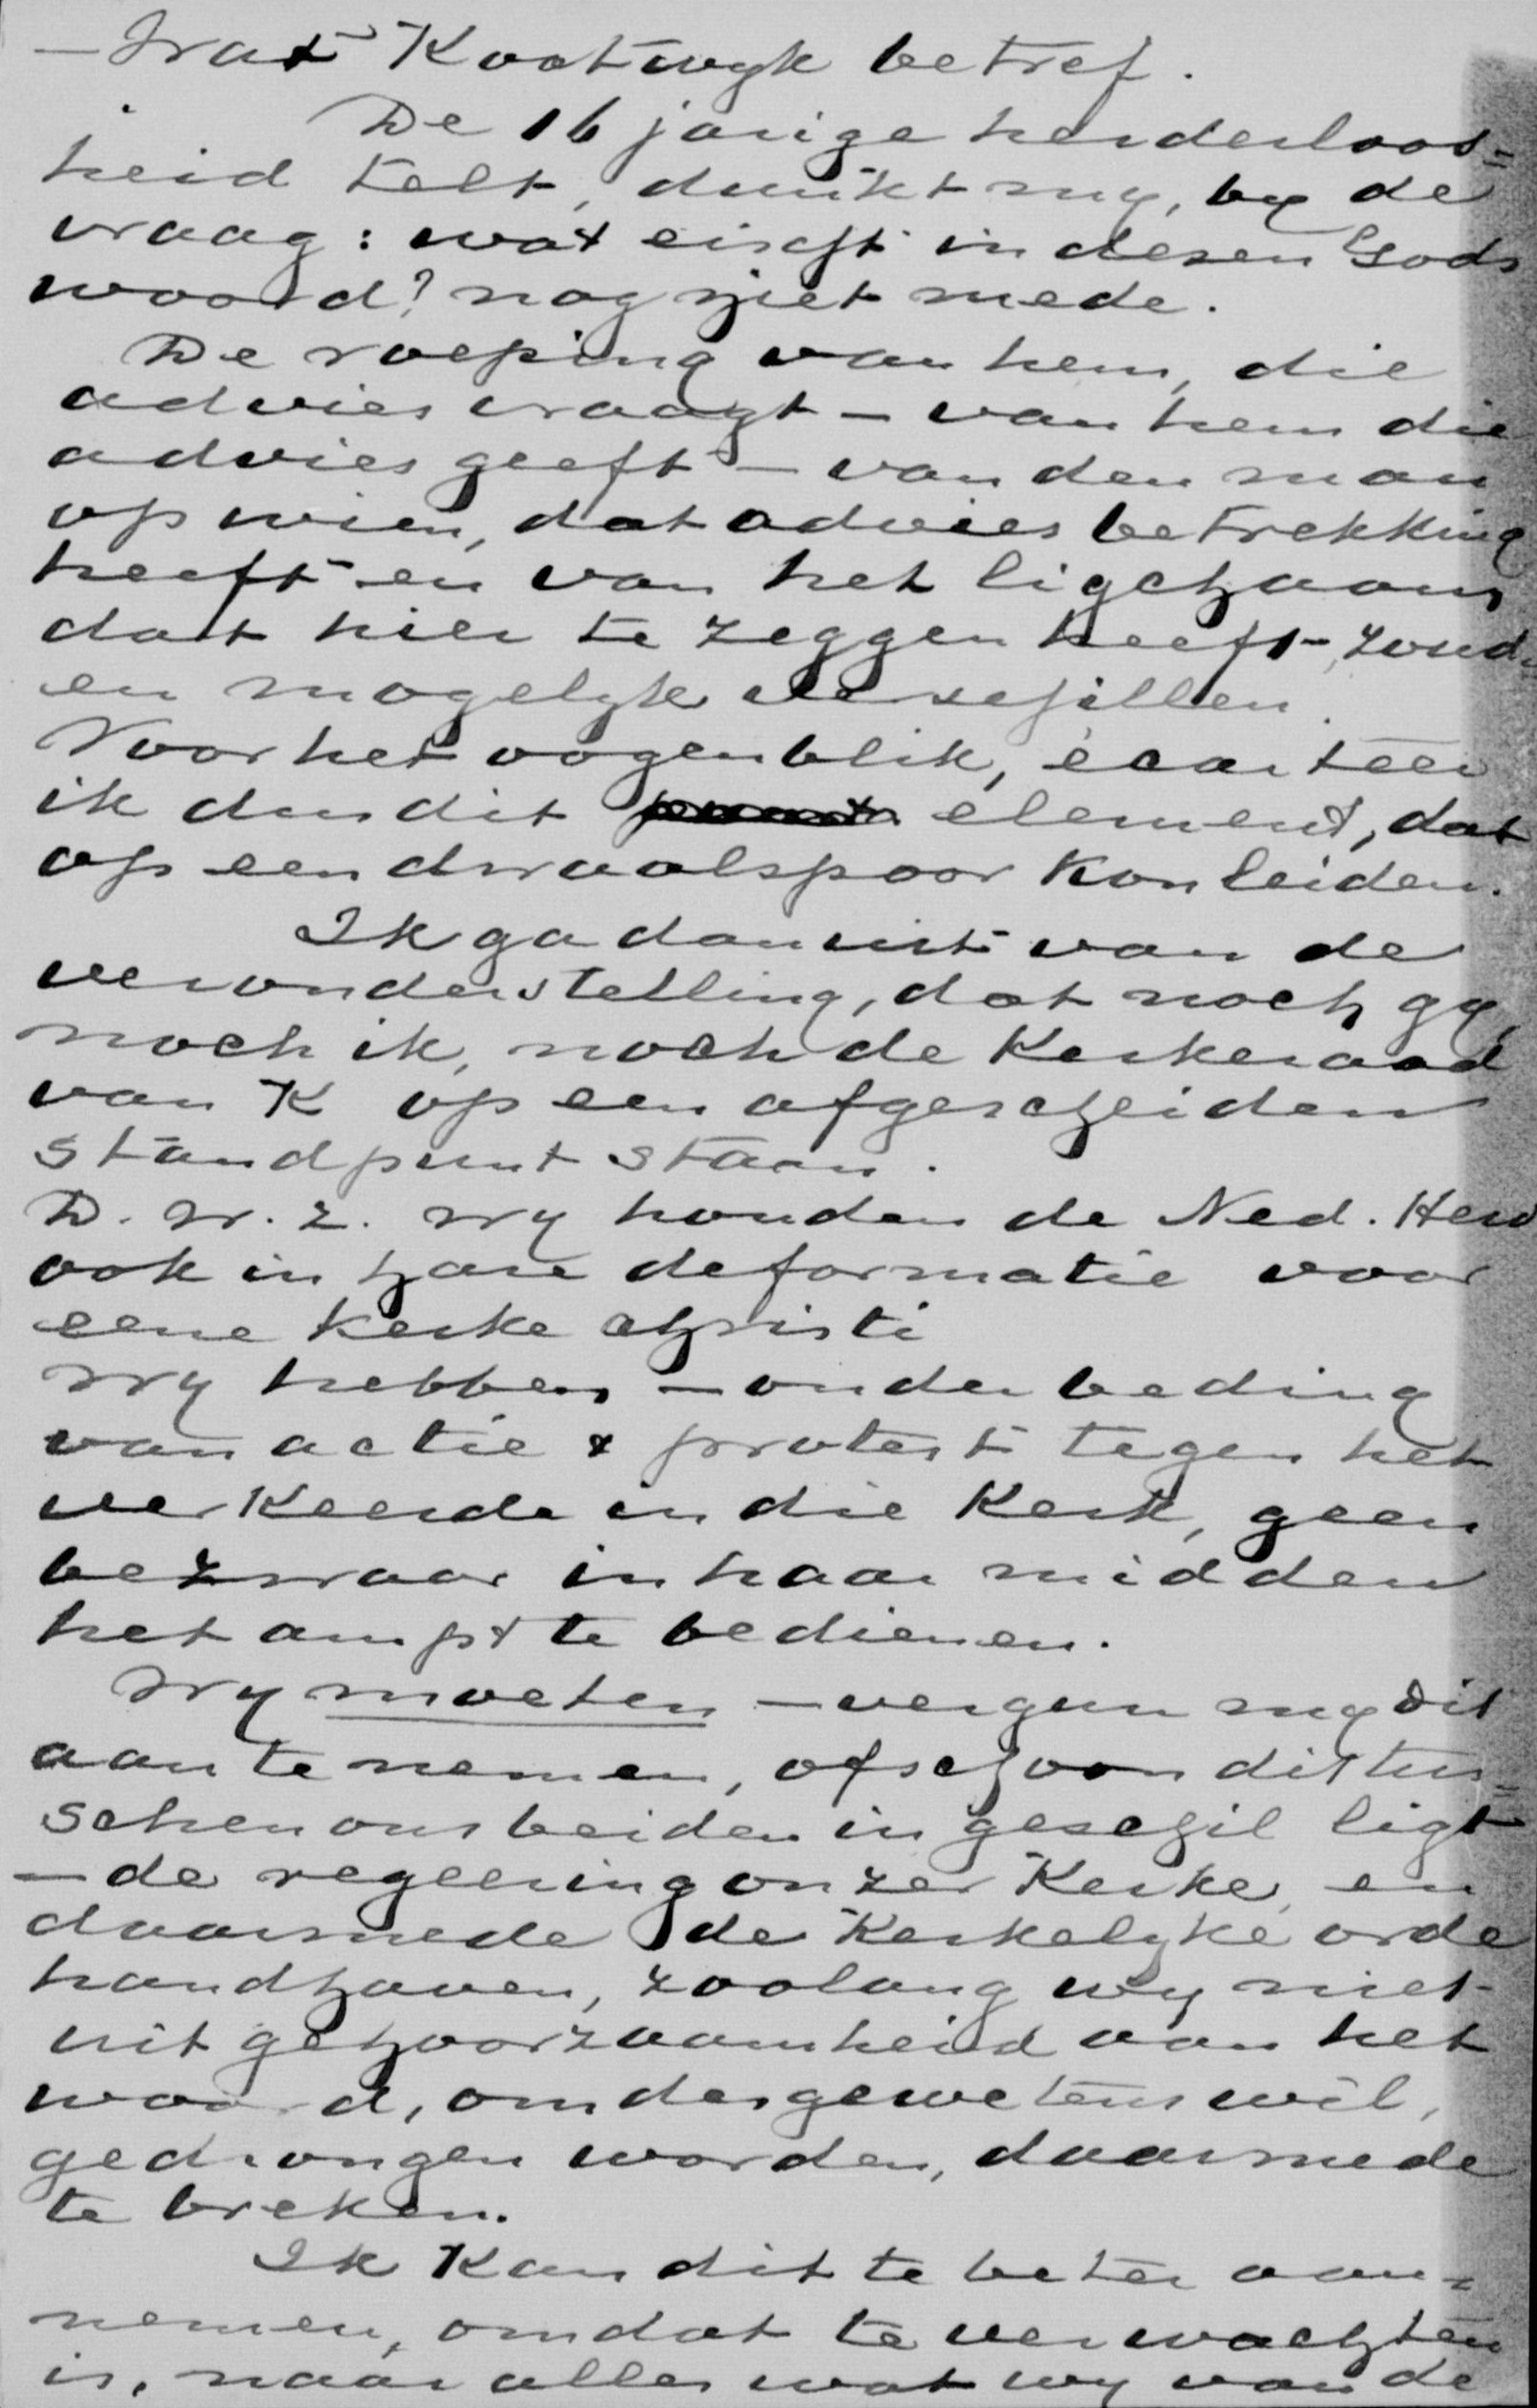 — Wat Kootwyk betref.
De 16 jarige herderloos=
heid telt, dunkt my, by de
vraag: wat eischt in desen Gods
woord? nog niet mede.
De roeping van hem, die
advies vraagt — van hem die
advies geeft — van den man
op wien, dat advies betrekking
heeft en van het ligchaam
dat hier te zeggen heeft, zoud=
en mogelyk verschillen.
Voor het oogenblik, écarteer
ik dus dit element, dat
op een dwaalspoor kon leiden.
Ik ga dan uit van de
veronderstelling, dat noch gy,
noch ik, noch de Kerkeraad
van K op een afgescheiden
standpunt staan.
D. w. z. wy houden de Ned. Herv
ook in hare deformatie voor
eene kerke Christi
Wy hebben — onder beding
van actie & protest tegen het
verkeerde in die Kerk, geen
bezwaar in haar midden
het ampt te bedienen.
Wy moeten — vergun my dit
aan te nemen, ofschoon dit tus=
schen ons beiden in geschil ligt
— de regeering onzer Kerke, en
daarmede de Kerkelyke orde
handhaven, zoolang wy niet
uit gehoorzaamheid aan het
woord, om des gewetens wil,
gedrongen worden, daarmede
te breken.
Ik kan dit te beter aan=
nemen, omdat te verwachten
is, naar alles wat wy van de